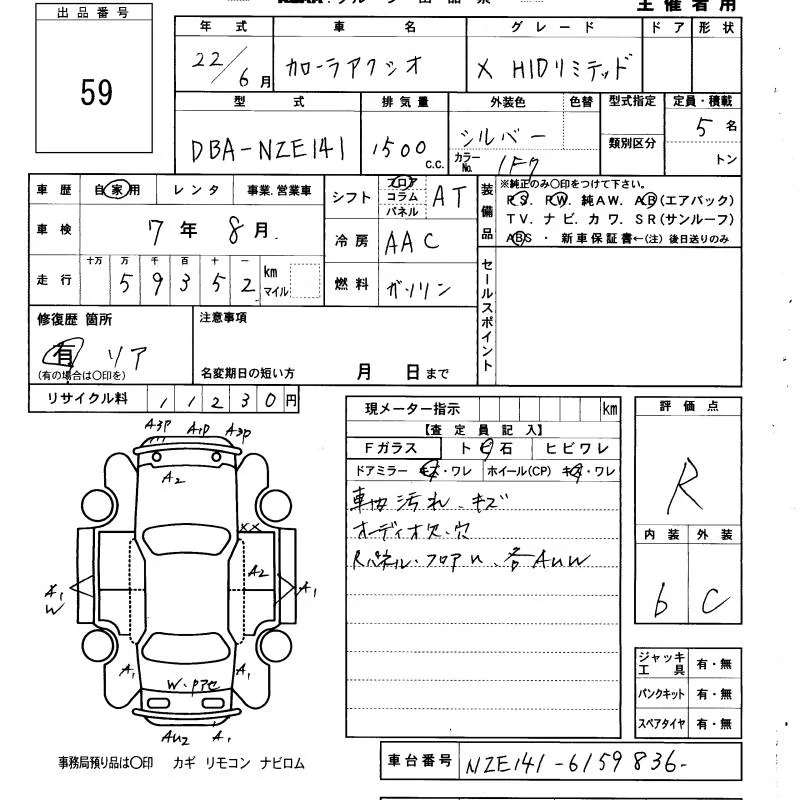 出品番号
59
主催者用
年式 車名 グレード ドア 形状
22/6月 カローラアクシオ X HIDリミテッド
型式 排気量 外装色 色替 型式指定 定員・積載
DBA-NZE141 1500 c.c. シルバー 5名
カラーNo. 1F7 類別区分 トン
車歴 自家用 レンタ 事業.営業車
シフト フロア コラム パネル AT
装備品
※純正のみ〇印をつけて下さい。
PS. PW. 純AW. AB(エアバック)
TV. ナビ. カワ. SR(サンルーフ)
ABS ・ 新車保証書←(注) 後日送りのみ
車検 7年 8月
冷房 AAC
走行 十万 万 千 百 十 一
59352 km マイル
燃料 ガソリン
セールスポイント
修復歴 箇所
有 リア
(有の場合は〇印を)
注意事項
名変期日の短い方 月 日まで
リサイクル料 11230円
現メーター指示 km
【査定員記入】
Fガラス ト ビ 石 ヒビワレ
ドアミラー キズ・ワレ ホイール(CP) キズ・ワレ
車内汚れ、キズ
オーディオ欠、穴
Rパネル・フロアU、各AUW
評価点
R
内装 外装
b C
A3P A1P A3P
A2
XX
A2
A1
W
A1
A1 A1
W・
AU2 A1
ジャッキ工具 有・無
パンクキット 有・無
スペアタイヤ 有・無
事務局預り品は〇印 カギ リモコン ナビロム
車台番号 NZE141-6159836-